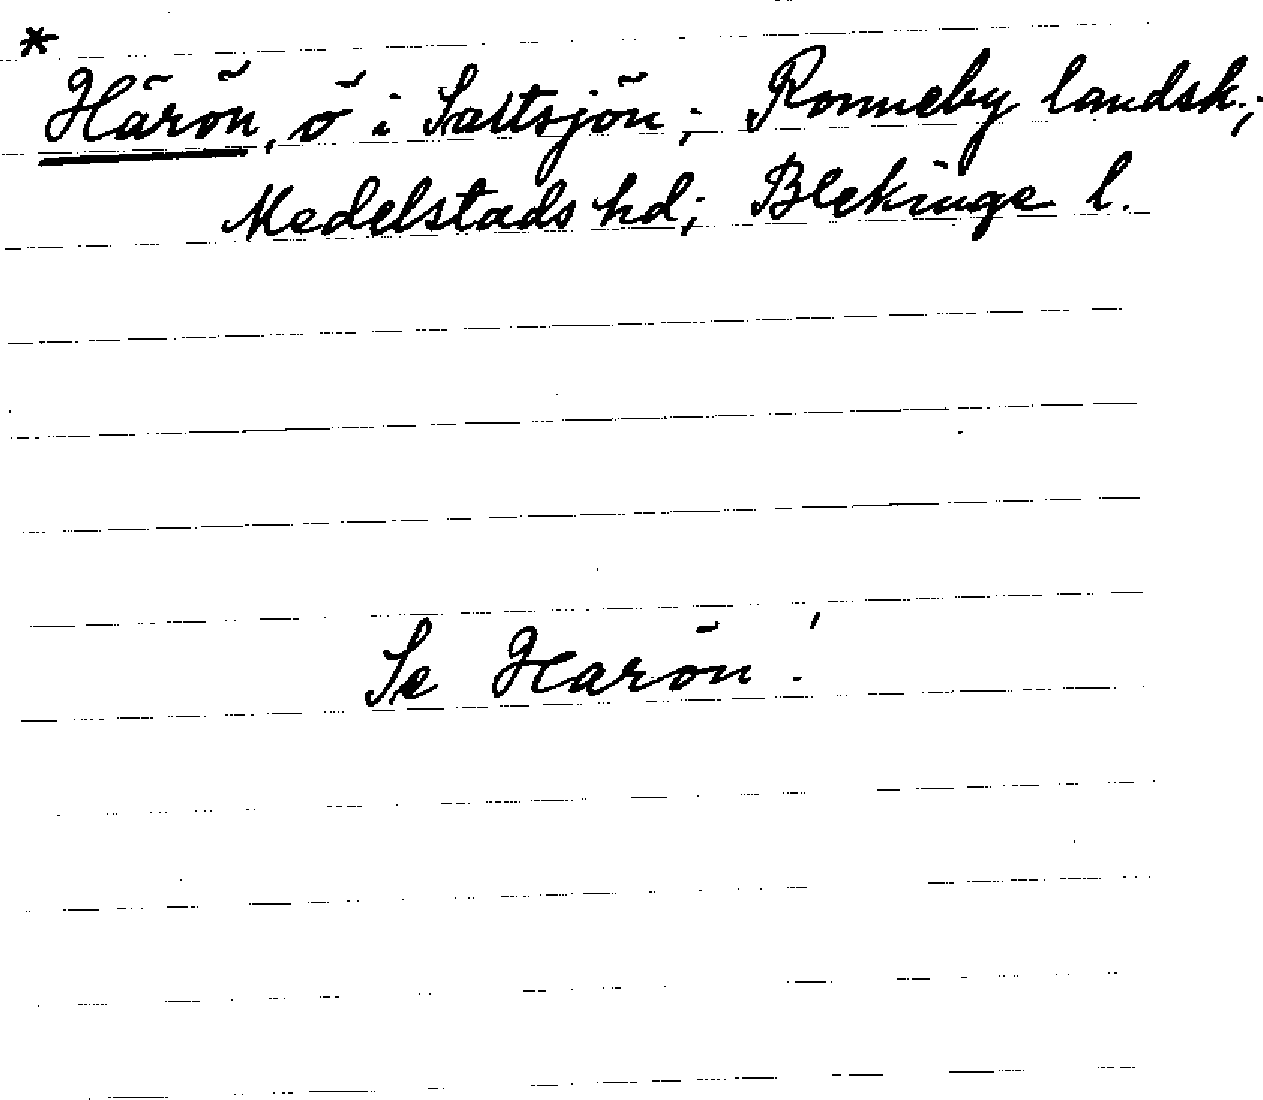 *
Härön, ö i Saltsjön; Ronneby landsk.;
Medelstads hd; Blekinge l.
Se Harön!